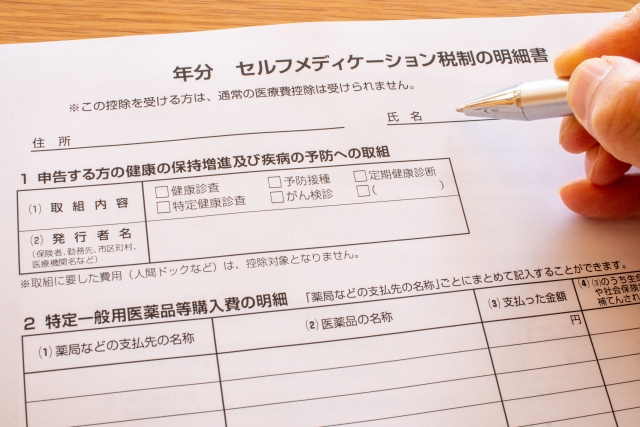 年分 セルフメディケーション税制の明細書
※この控除を受ける方は、通常の医療費控除は受けられません。
住 所
氏 名
1 申告する方の健康の保持増進及び疾病の予防への取組
(1) 取 組 内 容
□健康診査 □予防接種 □定期健康診断
□特定健康診査 □がん検診 □( )
(2) 発 行 者 名
(保険者、勤務先、市区町村、
医療機関名など)
※取組に要した費用(人間ドックなど)は、控除対象となりません。
2 特定一般用医薬品等購入費の明細 「薬局などの支払先の名称」ごとにまとめて記入することができます。
(1) 薬局などの支払先の名称
(2) 医薬品の名称
(3) 支払った金額
円
(4) (3)のうち生
や社会保険
補てんされ